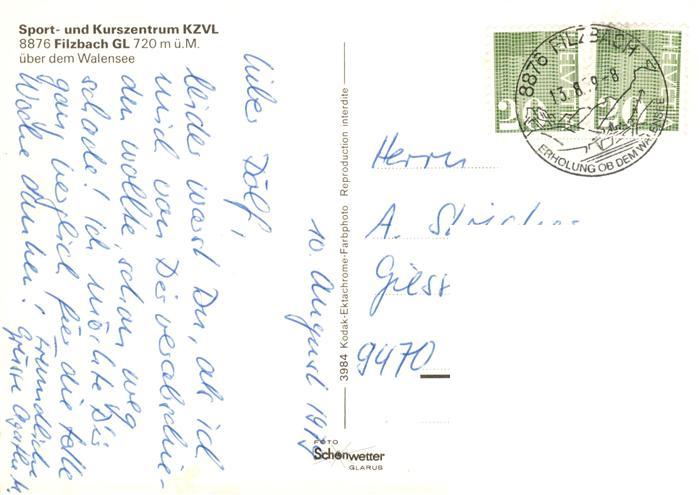 Sport- und Kurszentrum KZVL
8876 Filzbach GL 720 m ü.M.
über dem Walensee
Lieber Dölf,
leider warst Du, als ich
mich von Dir verabschie-
den wollte, schon weg
schade! Ich möchte Dir
ganz herzlich für die tolle
Woche danken!
Freundliche
Grüsse Agathe
10. August 1979
3984 Kodak-Ektachrome-Farbphoto Reproduction interdite
FOTO
Schönwetter
GLARUS
HELVETIA
20
HELVETIA
20
8876 FILZBACH
13.8.79-8
ERHOLUNG OB DEM WALENSEE
Herrn
A.
9470